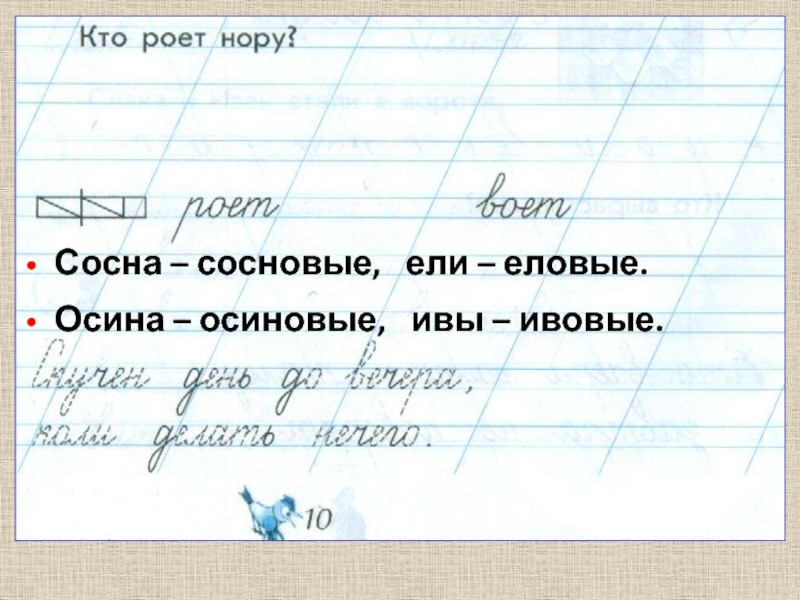 Кто роет нору?
роет воет
• Сосна – сосновые, ели – еловые.
• Осина – осиновые, ивы – ивовые.
Скучен день до вечера,
коли делать нечего.
10